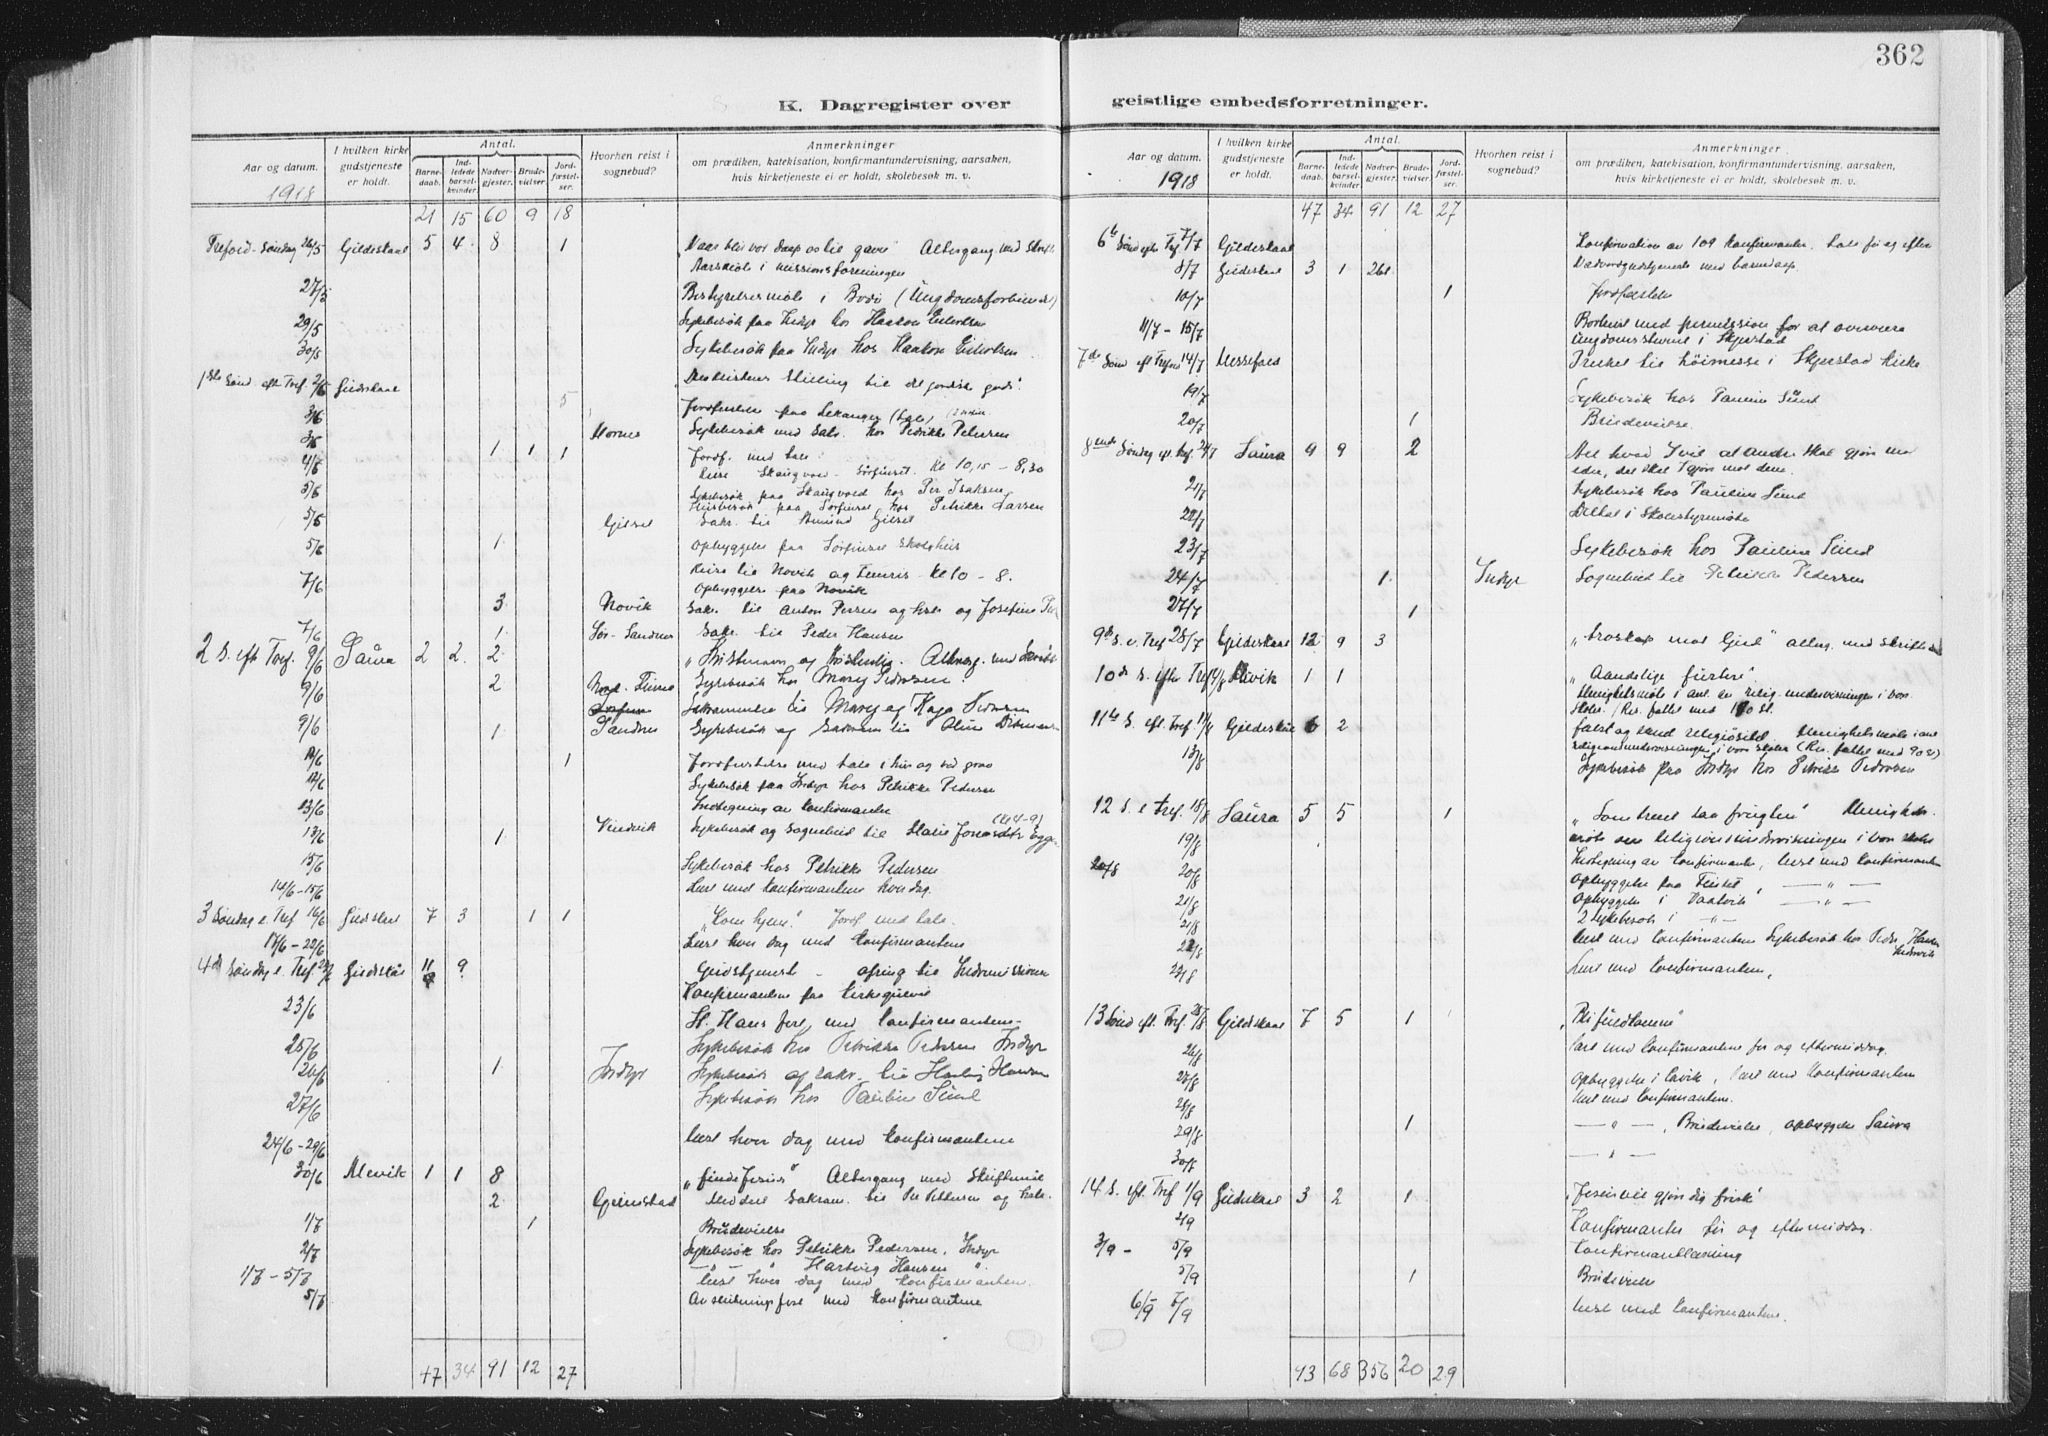 362
K. Dagregister over
geistlige embedsforretninger.
Aar og datum.
1918
I hvilken kirke gudstjeneste er holdt.
Antal.
Barnedaab.
Indledede barselkvinder.
Nadvergjester.
Brudevielser.
Jordfæstelser.
Hvorhen reist i sognebud?
Anmerkninger
om prædiken, katekisation, konfirmantundervisning, aarsaken,
hvis kirketjeneste ei er holdt, skolebesøk m. v.
21 15 60 9 18
Søndag 26/5 Gildeskaal 5 4 8 1 Altergang med
Aarsmøte i missionsforeningen
27/5 Bestyrelsesmøte i Bodø (Ungdomsforbundet)
29/5 Sykebesøk paa Indyr hos Haakon
30/5 Sykebesøk paa Indyr hos Haakon
1ste Sønd eft Tref. 2/6 Gildeskaal stilling til det jordiske gods".
5 Jordfæstelse paa (tale)
3/6
3/6 Mornes Sykebesøk med Sakr. hos Petrikke Petersen
4/6 1 1 1 Jordf. med tale
Reise Skaugvold - Sørfinset. Kl 10,15 - 8,30
5/6 Sykebesøk paa Skaugvold hos Per Isaksen
Husbesøk paa Sørfinset hos Petrikke Larsen
5/6 Gilset Sakr. til Amund Gilset
5/6 1 Opbyggelse paa Sørfinset Skolehus
7/6 Reise til Novik og Kl 10 - 8.
Opbyggelse paa Novik
3 Novik Sakr. til Anton og Josefine
7/6 1 Sør-Sandnes Sakr. til Peder Hansen
2 S. eft Tref. 9/6 Saura 2 2 2 "Kristennavn og Kristenliv. Alterg. med
9/6 2 Sykebesøk hos Mary Pedersen.
Sakramentet til Mary og Kaja Pedersen
9/6 1 Sandnes Sykebesøk og Sakram til Oline
11/6 1 Jordfæstelse med tale i hus og ved grav
12/6 Sykebesøk paa Indyr hos Petrikke Pedersen
13/6 Indtegning av Konfirmanter
13/6 1 Sykebesøk og Sognebud til (Kl 4-9)
15/6 Sykebesøk hos Petrikke Pedersen
14/6-15/6 Læst med Konfirmantene hver dag.
3 Søndag e. Tref 16/6 Gildeskaal 7 3 1 1 "Kom hjem". Jordf. med tale.
17/6-22/6 Læst hver dag med Konfirmantene
4de Søndag e. Tref. 23/6 Gildeskaal 11 9 Gudstjeneste - ofring til Indremissionen
Konfirmantene paa Kirkegulvet
23/6 St. Hans fest med Konfirmantene
25/6 Sykebesøk hos Petrikke Pedersen Indyr
26/6 1 Indyr Sykebesøk og sakr. til Hartvig Hansen
27/6 Sykebesøk hos Pauline Sund
24/6-29/6 læst hver dag med Konfirmantene
30/6 Mevik 1 1 8 "finde Jesus" Altergang med Skriftemaal
2 Grimstad Meddelt Sakram. til Per Pettersen og
1/7 1 Brudevielse
2/7 Sykebesøk hos Petrikke Pedersen, Indyr
— " — " Hartvig Hansen "
1/7-5/7 læst hver dag med Konfirmantene.
5/7 Avslutningsfest med Konfirmantene
47 34 91 12 27
Aar og datum.
1918
I hvilken kirke gudstjeneste er holdt.
Antal.
Barnedaab.
Indledede barselkvinder.
Nadvergjester.
Brudevielser.
Jordfæstelser.
Hvorhen reist i sognebud?
Anmerkninger.
om prædiken, katekisation, konfirmantundervisning, aarsaken,
hvis kirketjeneste ei er holdt, skolebesøk m. v.
47 34 91 12 27
6te Sønd efter Tref 7/7 Gildeskaal Konfirmation av 109 Konfirmanter. tale før og efter
8/7 Gildeskaal 3 1 261 Nadverdgudstjeneste med barnedaap
10/7 1 Jordfæstelse
11/7 - 15/7 Bortreist med permission for at overvære
Ungdomsstevne i Skjerstad
7de Sønd eft Tref 14/7 Messefald Præket til høimesse i Skjerstad Kirke
19/7 Sykebesøk hos Pauline Sund
20/7 1 Brudevielse.
8ende Søndag eft. tref. Saura 9 9 2 Alt hvad I vil at andre skal gjøre mot
eder, det skal I gjøre mot dem.
21/7 Sykebesøk hos Pauline Sund
22/7 Deltat i Skolestyremøte
23/7 Sykebesøk hos Pauline Sund
24/7 1 Indyr Sognebud til Petrikke Pedersen
27/7 1
9de S. e. Tref 28/7 Gildeskaal 12 9 3 "troskap mot Gud" alterg. med skriftemaal
10de S. efter Tref 4/8 Mevik 1 1 "Aandelige førere".
Menighetsmøte i anl. av relig. undervisningen i vor
skole. (Res. fattet med 170 st.
11te S. eft. Tref 11/8 Gildeskaal 6 2 falsk og sund religiøsitet. Menighetsmøte i anl
religionsundervisningen i vor skole (Res. fattet med 90 st)
13/8 Sykebesøk paa Indyr hos Petrikke Pedersen
12 S. e tref. 18/8 Saura 5 5 1 "Som træet saa frugten" Menighets-
møte om religionsundervisningen i vor skole
19/8 Indtegning av Konfirmanter, læst med Konfirmantene
20/8 20/8 Opbyggelse paa Finset, — " —
21/8 Opbyggelse i — " —
21/8 2 Sykebesøk i — " —
22/8 læst med Konfirmantene Sykebesøk hos Peder Hansen
23/8 Læst med Konfirmantene,
13 Sønd eft. Tref. 25/8 Gildeskaal 7 5 1
26/8 læst med Konfirmantene for og eftermiddag.
27/8 Opbyggelse i Lavik, læst med Konfirmantene
28/8 læst med Konfirmantene.
29/8 1 — " —, Brudevielse, opbyggelse Saura
30/8 — " —
14 S. eft. Tref 1/9 Gildeskaal 3 2 1 "Jesus vil gjøre dig frisk"
2/9 Konfirmanter før og eftermiddag.
3/9 - 5/9 Konfirmantlæsning
5/9 1 Brudevielse
6/9 7/9 læst med Konfirmantene.
93 68 356 20 29